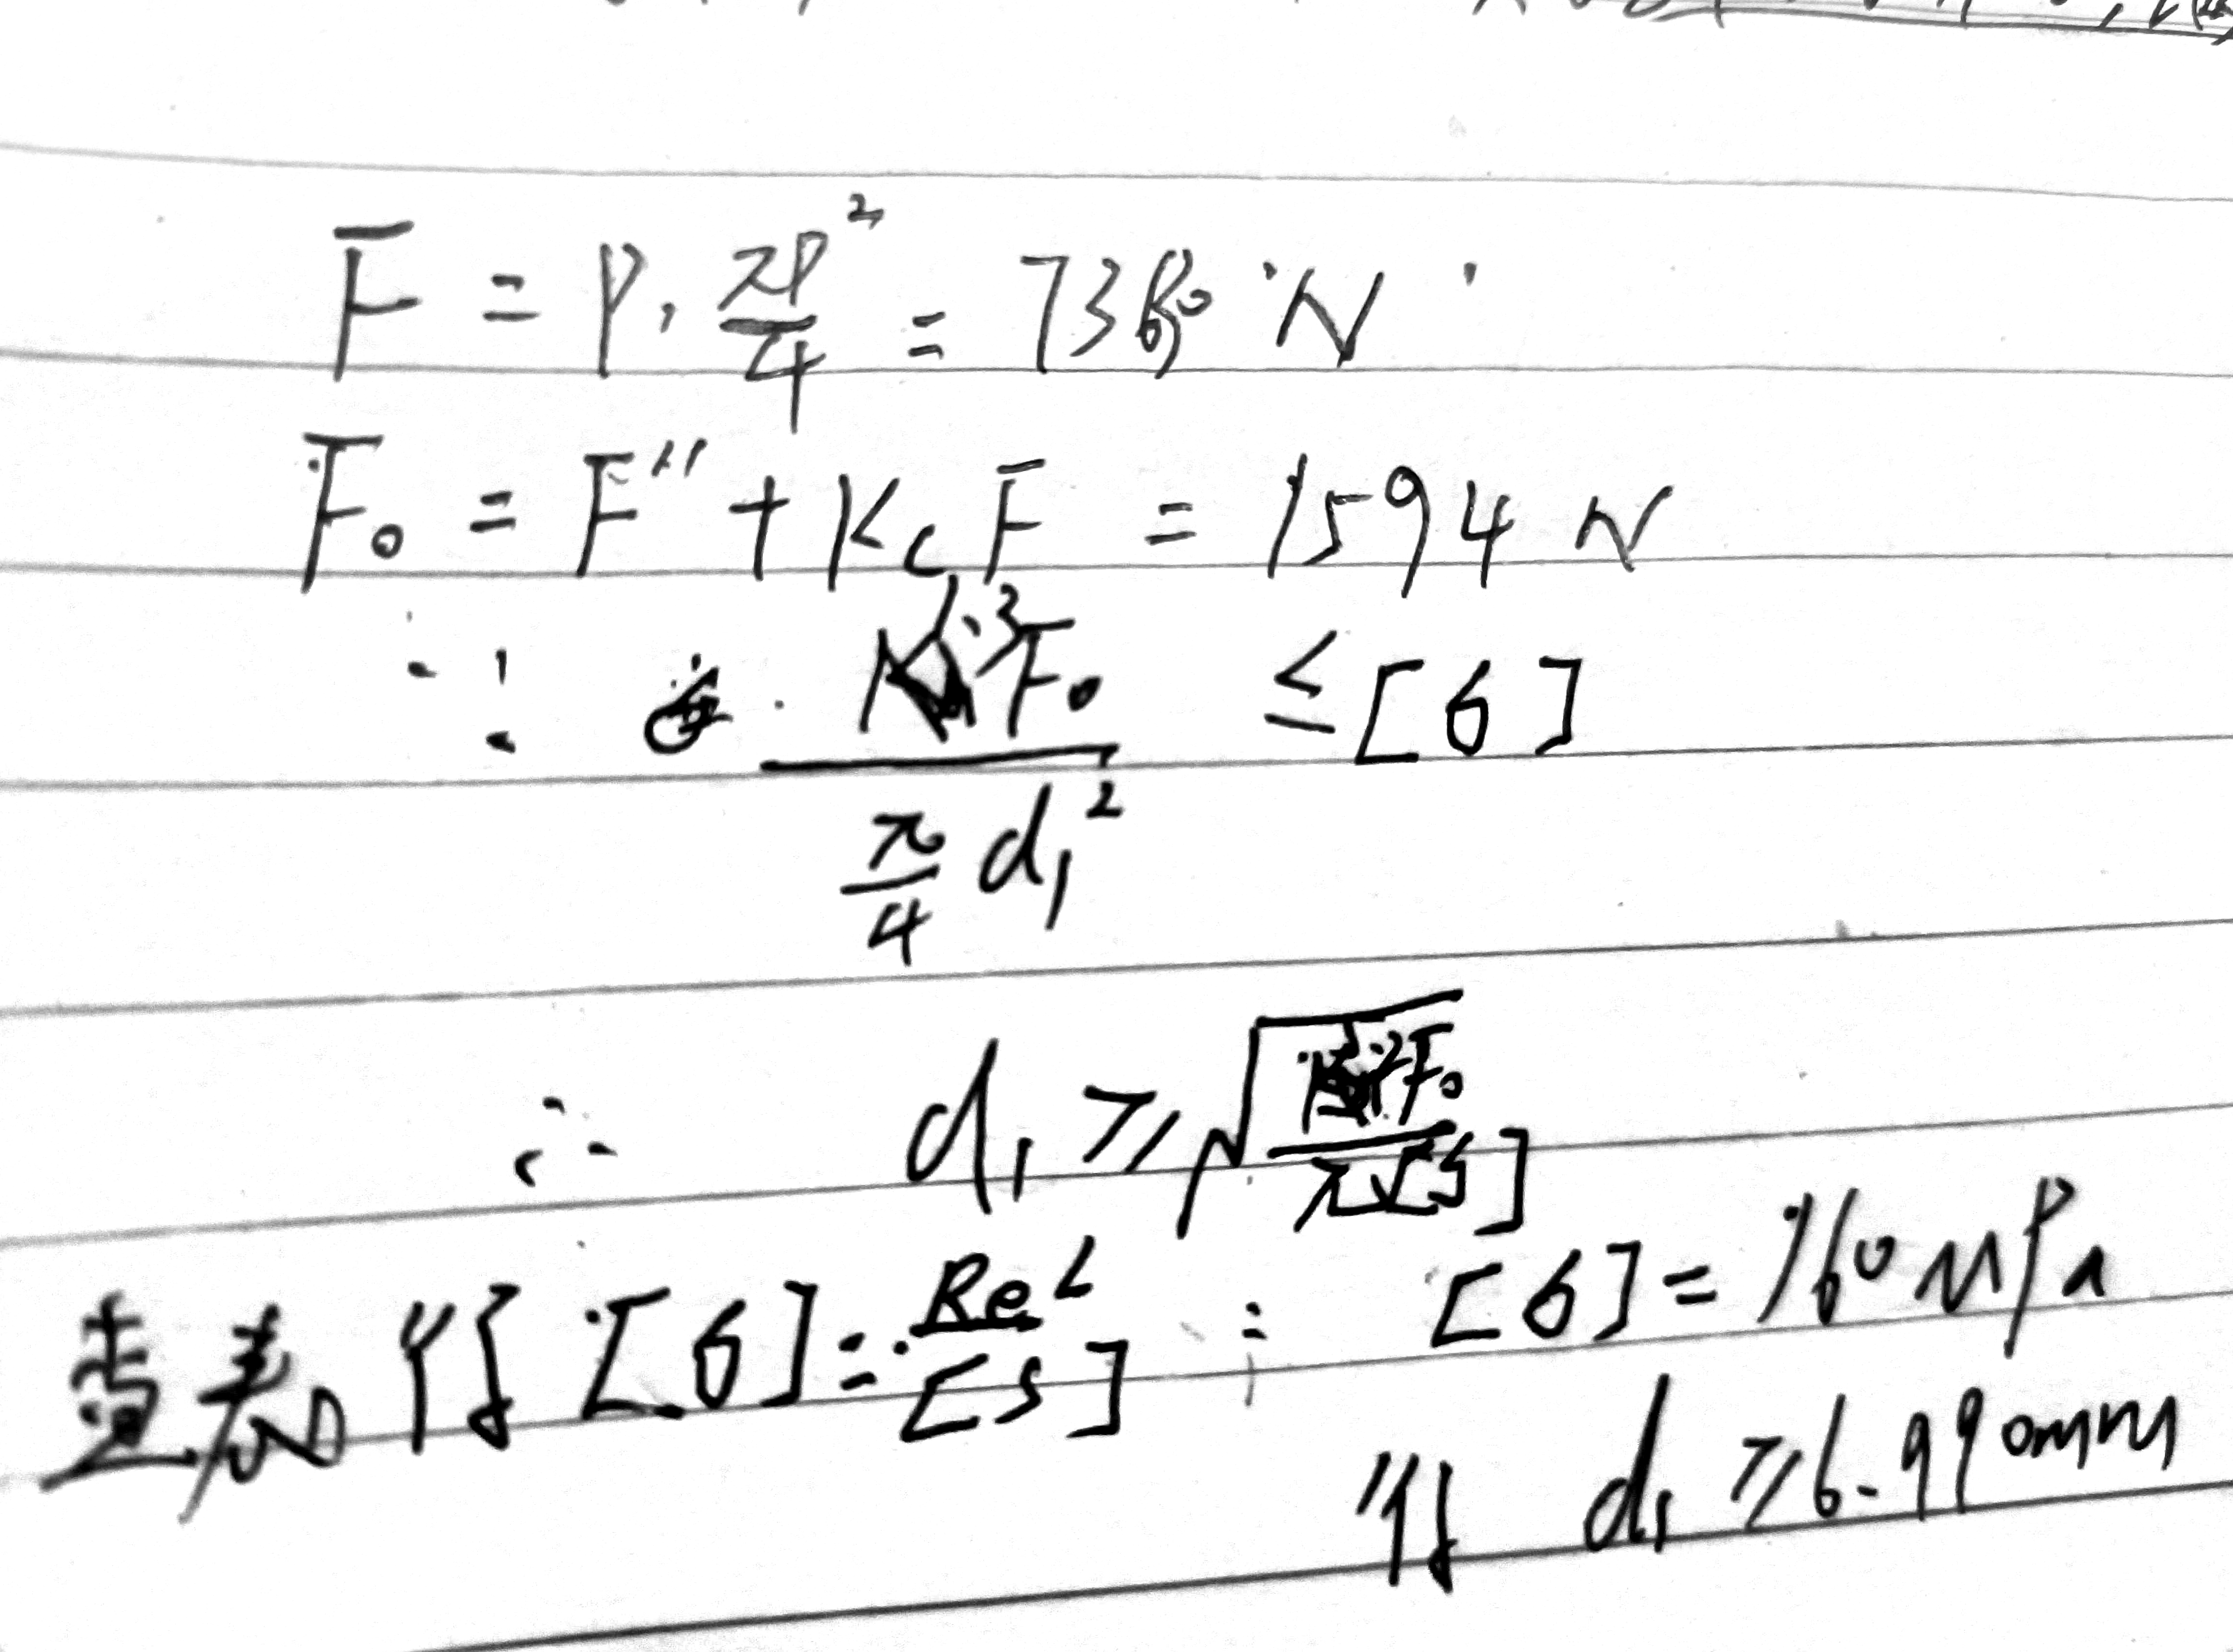 F = P · πP²/4 = 7380 N
F₀ = F″ + KcF = 1594 N
∵ 1.3F₀ / (π/4 d₁²) ≤ [σ]
∴ d₁ ≥
查表得 [σ] = ReL/[S] ∴ [σ] = 160 MPa
得 d₁ ≥ 6.990mm